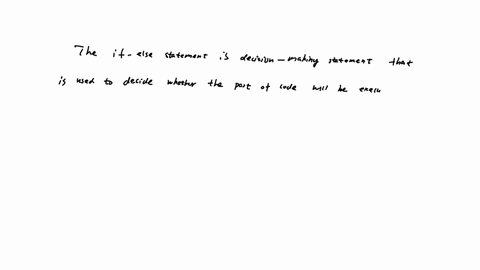 The if-else statement is decision-making statement that
is used to decide whether the part of code will be execu